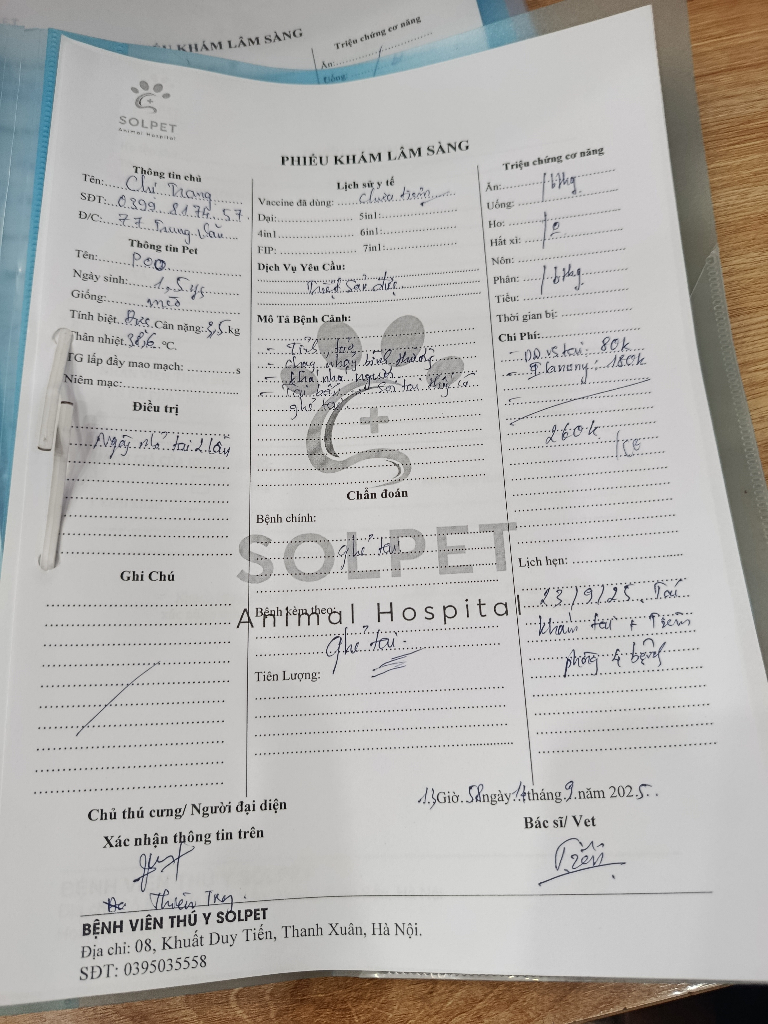 PHIẾU KHÁM LÂM SÀNG
Triệu chứng cơ năng
Ăn:
Uống:
SOLPET
Animal Hospital
PHIẾU KHÁM LÂM SÀNG
Thông tin chủ
Tên: Chị Trang
SĐT: 0399 8174 57
Đ/C: 77 Trung
Thông tin Pet
Tên: POO
Ngày sinh: 1,5 ys
Giống: mèo
Tính biệt: Đực Cân nặng: 3,5 kg
Thân nhiệt 38,6 °C.
TG lấp đầy mao mạch: s
Niêm mạc:
Điều trị
Ngày nhỏ tai 2 lần
Ghi Chú
Lịch sử y tế
Vaccine đã dùng: Chưa
Dại: 5in1:
4in1 6in1:
FIP: 7in1:
Dịch Vụ Yêu Cầu:
Mô Tả Bệnh Cảnh:
- Tỉnh, táo
- chạy nhảy bình thường
- người
- Tai bẩn soi tai thấy có
ghẻ tai
Chẩn đoán
Bệnh chính:
ghẻ tai
Bệnh kèm theo:
Ghẻ tai
Tiên Lượng:
SOLPET
Animal Hospital
Triệu chứng cơ năng
Ăn: / bthg
Uống:
Ho: / 0
Hắt xì:
Nôn:
Phân: / bthg
Tiểu:
Thời gian bị:
Chi Phí:
- DD vs tai: 80k
- : 180k
-
260k
Lịch hẹn:
23/9/25. Tái
khám tai + Tiêm
phòng 4 bệnh
Chủ thú cưng/ Người đại diện
Xác nhận thông tin trên
13 Giờ 58 ngày 17 tháng 9 năm 2025
Bác sĩ/ Vet
BỆNH VIỆN THÚ Y SOLPET
Địa chỉ: 08, Khuất Duy Tiến, Thanh Xuân, Hà Nội.
SĐT: 0395035558